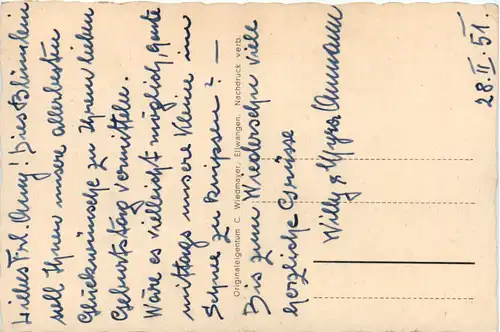 Liebes Frl. Anny! Dies Blümlein
soll Ihnen unsere allerbesten
Glückwünsche zu Ihrem lieben
Geburtstag vermitteln.
Wäre es vielleicht möglich heute
mittags unsere Kleine im
Schnee zu knipsen? –
Originaleigentum C. Wiedmayer, Ellwangen, Nachdruck verb.
Bis zum Wiedersehn viele
herzliche Grüsse
Willy & Ammann
28.II.51.